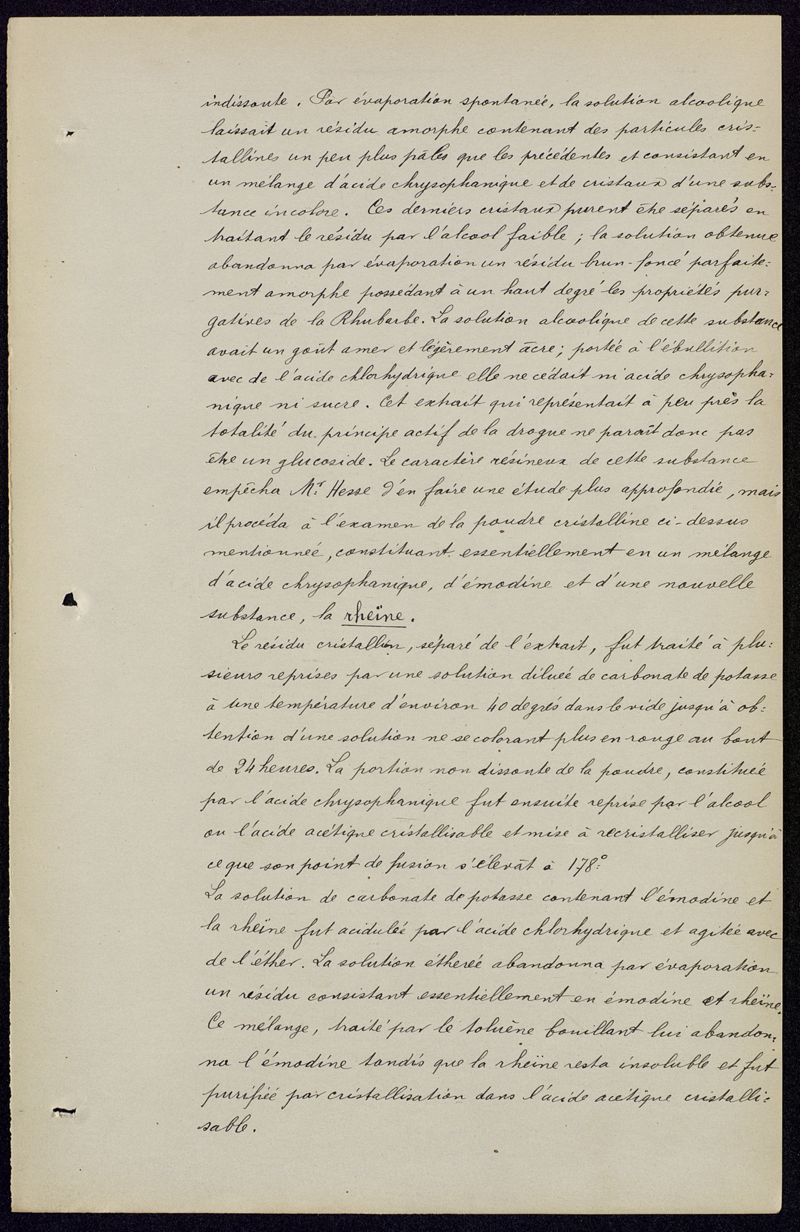 indissoute. Par évaporation spontanée, la solution alcoolique
laissait un résidu amorphe contenant des particules cris=
tallines un peu plus pâles que les précédentes et consistant en
un mélange d'acide chrysophanique et de cristaux d'une subs=
tance incolore. Ces derniers cristaux purent être séparés en
traitant le résidu par l'alcool faible; la solution obtenue
abandonna par évaporation un résidu brun-foncé parfaite=
ment amorphe possédant à un haut degré les propriétés pur=
gatives de la Rhubarbe. La solution alcoolique de cette substance
avait un goût amer et légèrement âcre; portée à l'ébullition
avec de l'acide chlorhydrique elle ne cédait ni acide chrysopha=
nique ni sucre. Cet extrait qui représentait à peu près la
totalité du principe actif de la drogue ne paraît donc pas
être un glucoside. Le caractère résineux de cette substance
empêcha Mr. Hesse d'en faire une étude plus approfondie, mais
il procéda à l'examen de la poudre cristalline ci-dessus
mentionnée, constituant essentiellement en un mélange
d'acide chrysophanique, d'émodine et d'une nouvelle
substance, la rhéïne.
Le résidu cristallin, séparé de l'extrait, fut traité à plu=
sieurs reprises par une solution diluée de carbonate de potasse
à une température d'environ 40 degrés dans le vide jusqu'à ob=
tention d'une solution ne se colorant plus en rouge au bout
de 24 heures. La portion non dissoute de la poudre, constituée
par l'acide chrysophanique fut ensuite reprise par l'alcool
ou l'acide acétique cristallisable et mise à recristalliser jusqu'à
ce que son point de fusion s'élevât à 178°.
La solution de carbonate de potasse contenant l'émodine et
la rhéïne fut acidulée par l'acide chlorhydrique et agitée avec
de l'éther. La solution éthérée abandonna par évaporation
un résidu consistant essentiellement en émodine et rhéïne.
Ce mélange, traité par le toluène bouillant lui abandon=
na l'émodine tandis que la rhéïne resta insoluble et fut
purifiée par cristallisation dans l'acide acétique cristalli=
sable.